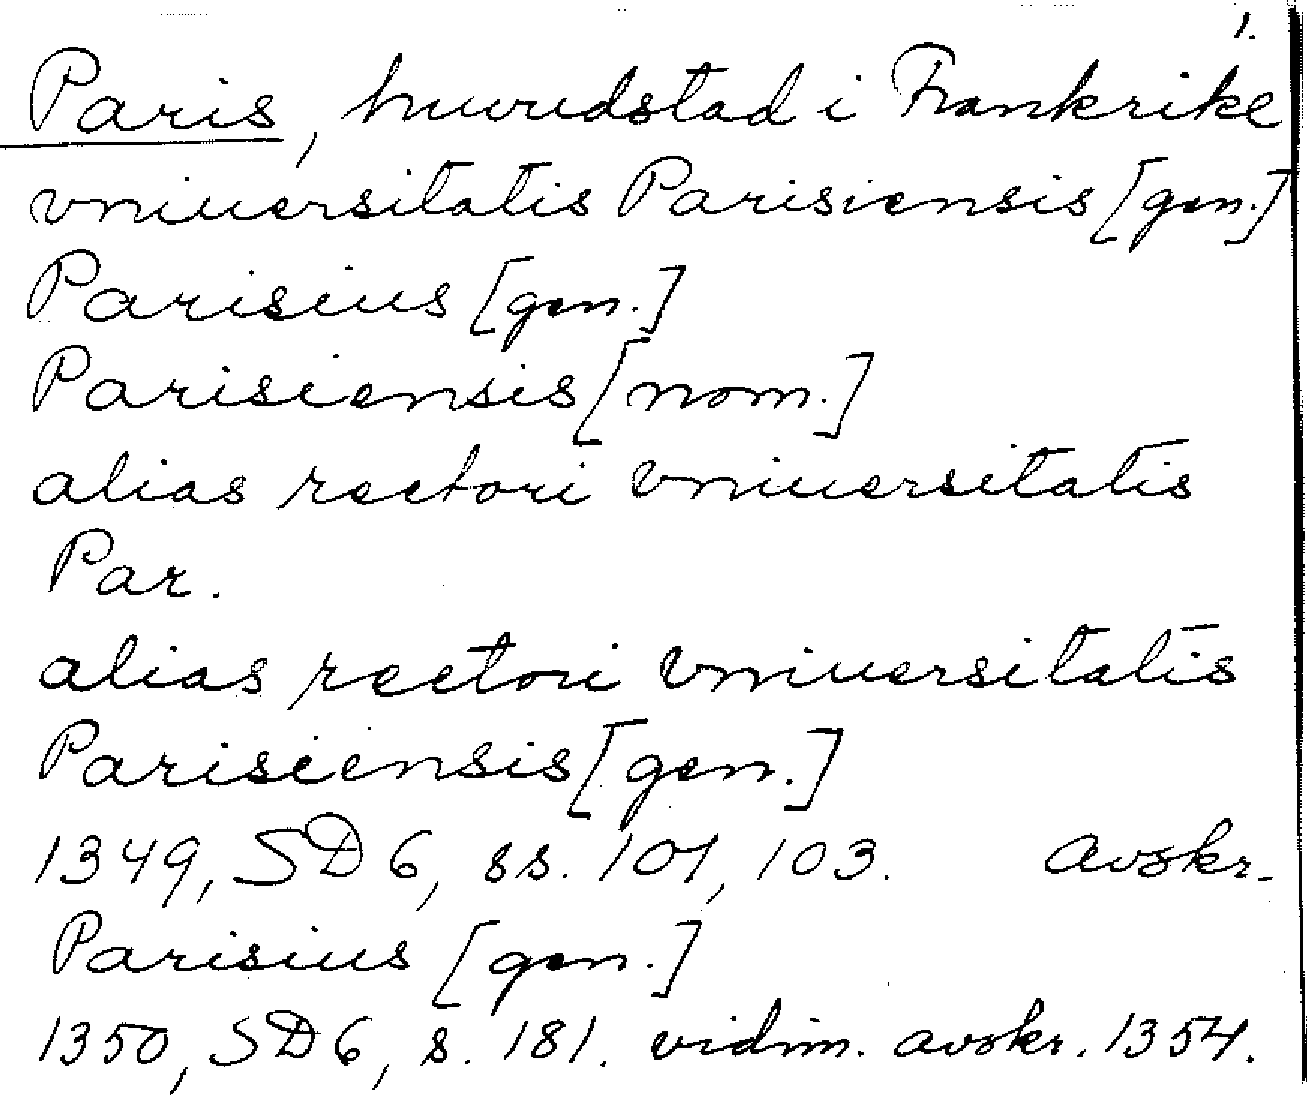 1.
Paris, huvudstad i Frankrike
vniuersitatis Parisiensis [gen.]
Parisius [gen.]
Parisiensis [nom.]
alias rectori vniuersitatis
Par.
alias rectori vniuersitatis
Parisiensis [gen.]
1349, SD 6, ss. 101, 103. avskr.
Parisius [gen.]
1350, SD 6, s. 181. vidim. avskr. 1354.